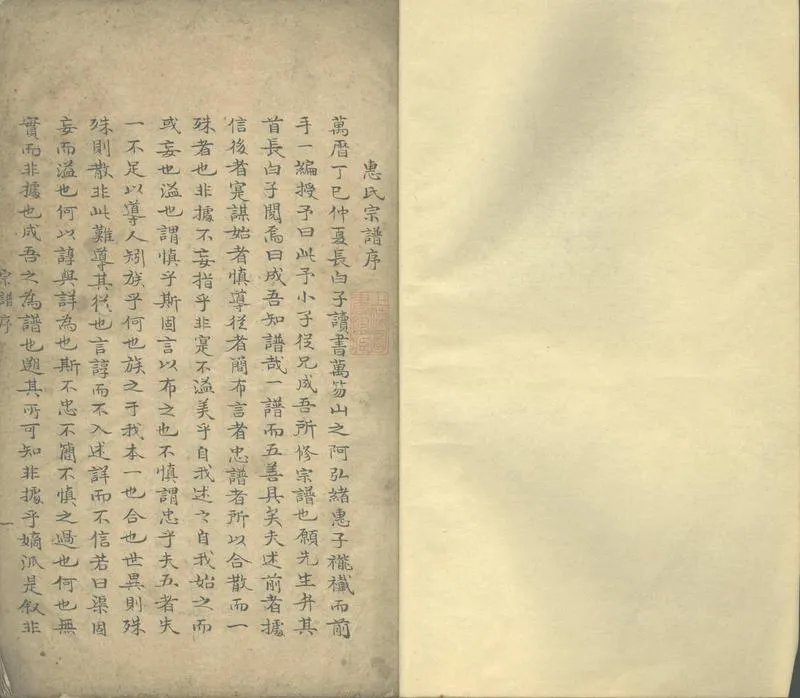 惠氏宗譜序
萬曆丁巳仲夏長白子讀書萬笏山之阿弘緒惠子襶襳而前
手一編授予曰此予小子從兄成吾所修宗譜也願先生弁其
首長白子閱焉曰成吾知譜哉一譜而五善具矣夫述前者據
信後者寔謀始者慎導從者簡布言者忠譜者所以合散而一
殊者也非據不妄指乎非寔不溢美乎自我述之自我始之而
或妄也溢也謂慎乎斯固言以布之也不慎謂忠乎夫五者失
一不足以導人矧族乎何也族之于我本一也合也世異則殊
殊則散非此難導其從也言諄而不入述詳而不信若曰渠固
妄而溢也何以諄與詳為也斯不忠不簡不慎之過也何也無
實而非據也成吾之為譜也遡其所可知非據乎嫡派是叙非
宗譜序
一